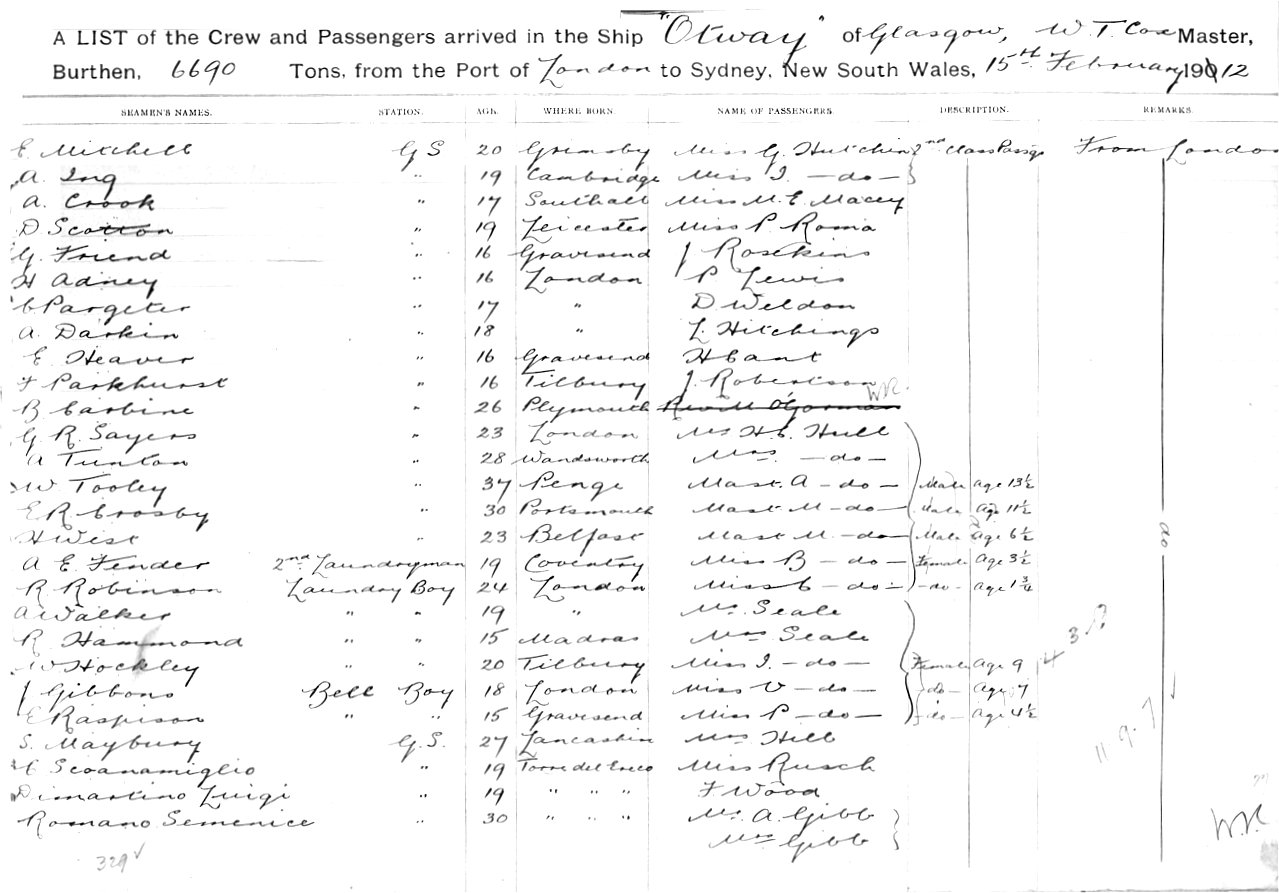 A LIST of the Crew and Passengers arrived in the Ship "Otway" of Glasgow, W. T. Cox Master,
Burthen, 6690 Tons, from the Port of London to Sydney, New South Wales, 15th February 1912
SEAMEN'S NAMES. STATION. AGE. WHERE BORN. NAME OF PASSENGERS. DESCRIPTION. REMARKS.
E. Mitchell G S 20 Grimsby Miss G. Hutchin 2nd Class Passgs From London
A. Ing " 19 Cambridge Miss I. -do-
A. Crook " 17 Southall Miss M. E. Macey
D Scotton " 19 Leicester Miss P. Roma
G. Friend " 16 Gravesend J Roskins
H Adney " 16 London P Lewis
C Pargeter " 17 " D Weldon
A. Darkin " 18 " L. Hitchings
E Heaver " 16 Gravesend H Cant
F Parkhurst " 16 Tilbury J. Robertson
B Carbine " 26 Plymouth O'Gorman W.R.
G R. Sayers " 23 London Mr H C. Hull
A Tunton " 28 Wandsworth Mrs. -do-
W Tooley " 37 Penge Mast. A -do- Male Age 13½
E R. Crosby " 30 Portsmouth Mast M -do- Male Age 11½
H West " 23 Belfast Mast M. -do- Male Age 6½ do
A E. Fender 2nd Laundryman 19 Coventry Miss B -do- Female Age 3½
R Robinson Laundry Boy 24 London Miss C -do- -do- Age 1¾
A Walker " " 19 " Mr. Seale
R Hammond " " 15 Madras Mrs Seale
W Hockley " " 20 Tilbury Miss I. -do- Female Age 9
J Gibbons Bell Boy 18 London Miss V -do- -do- Age 7
E Raspison " " 15 Gravesend Miss P -do- -do- Age 4½
S. Maybury G. S. 27 Lancashire Mrs Hill
C Scoanamiglio " 19 Torre del Greco Miss Rusch
Dimartino Luigi " 19 " " " F Wood
Romano Semenice " 30 " " " Mr. A. Gibb
Mrs Gibb
329
W.R